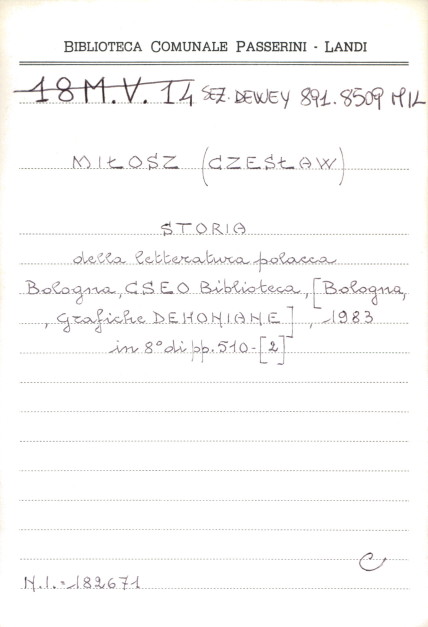 BIBLIOTECA COMUNALE PASSERINI - LANDI
18 M.V. 14 SEZ. DEWEY 891.8509 MIL
MIŁOSZ (CZESŁAW)
STORIA
della letteratura polacca
Bologna, CSEO Biblioteca, [Bologna,
, Grafiche DEHONIANE], 1983
in 8° di pp. 510-[2]
C
N.I. = 182671